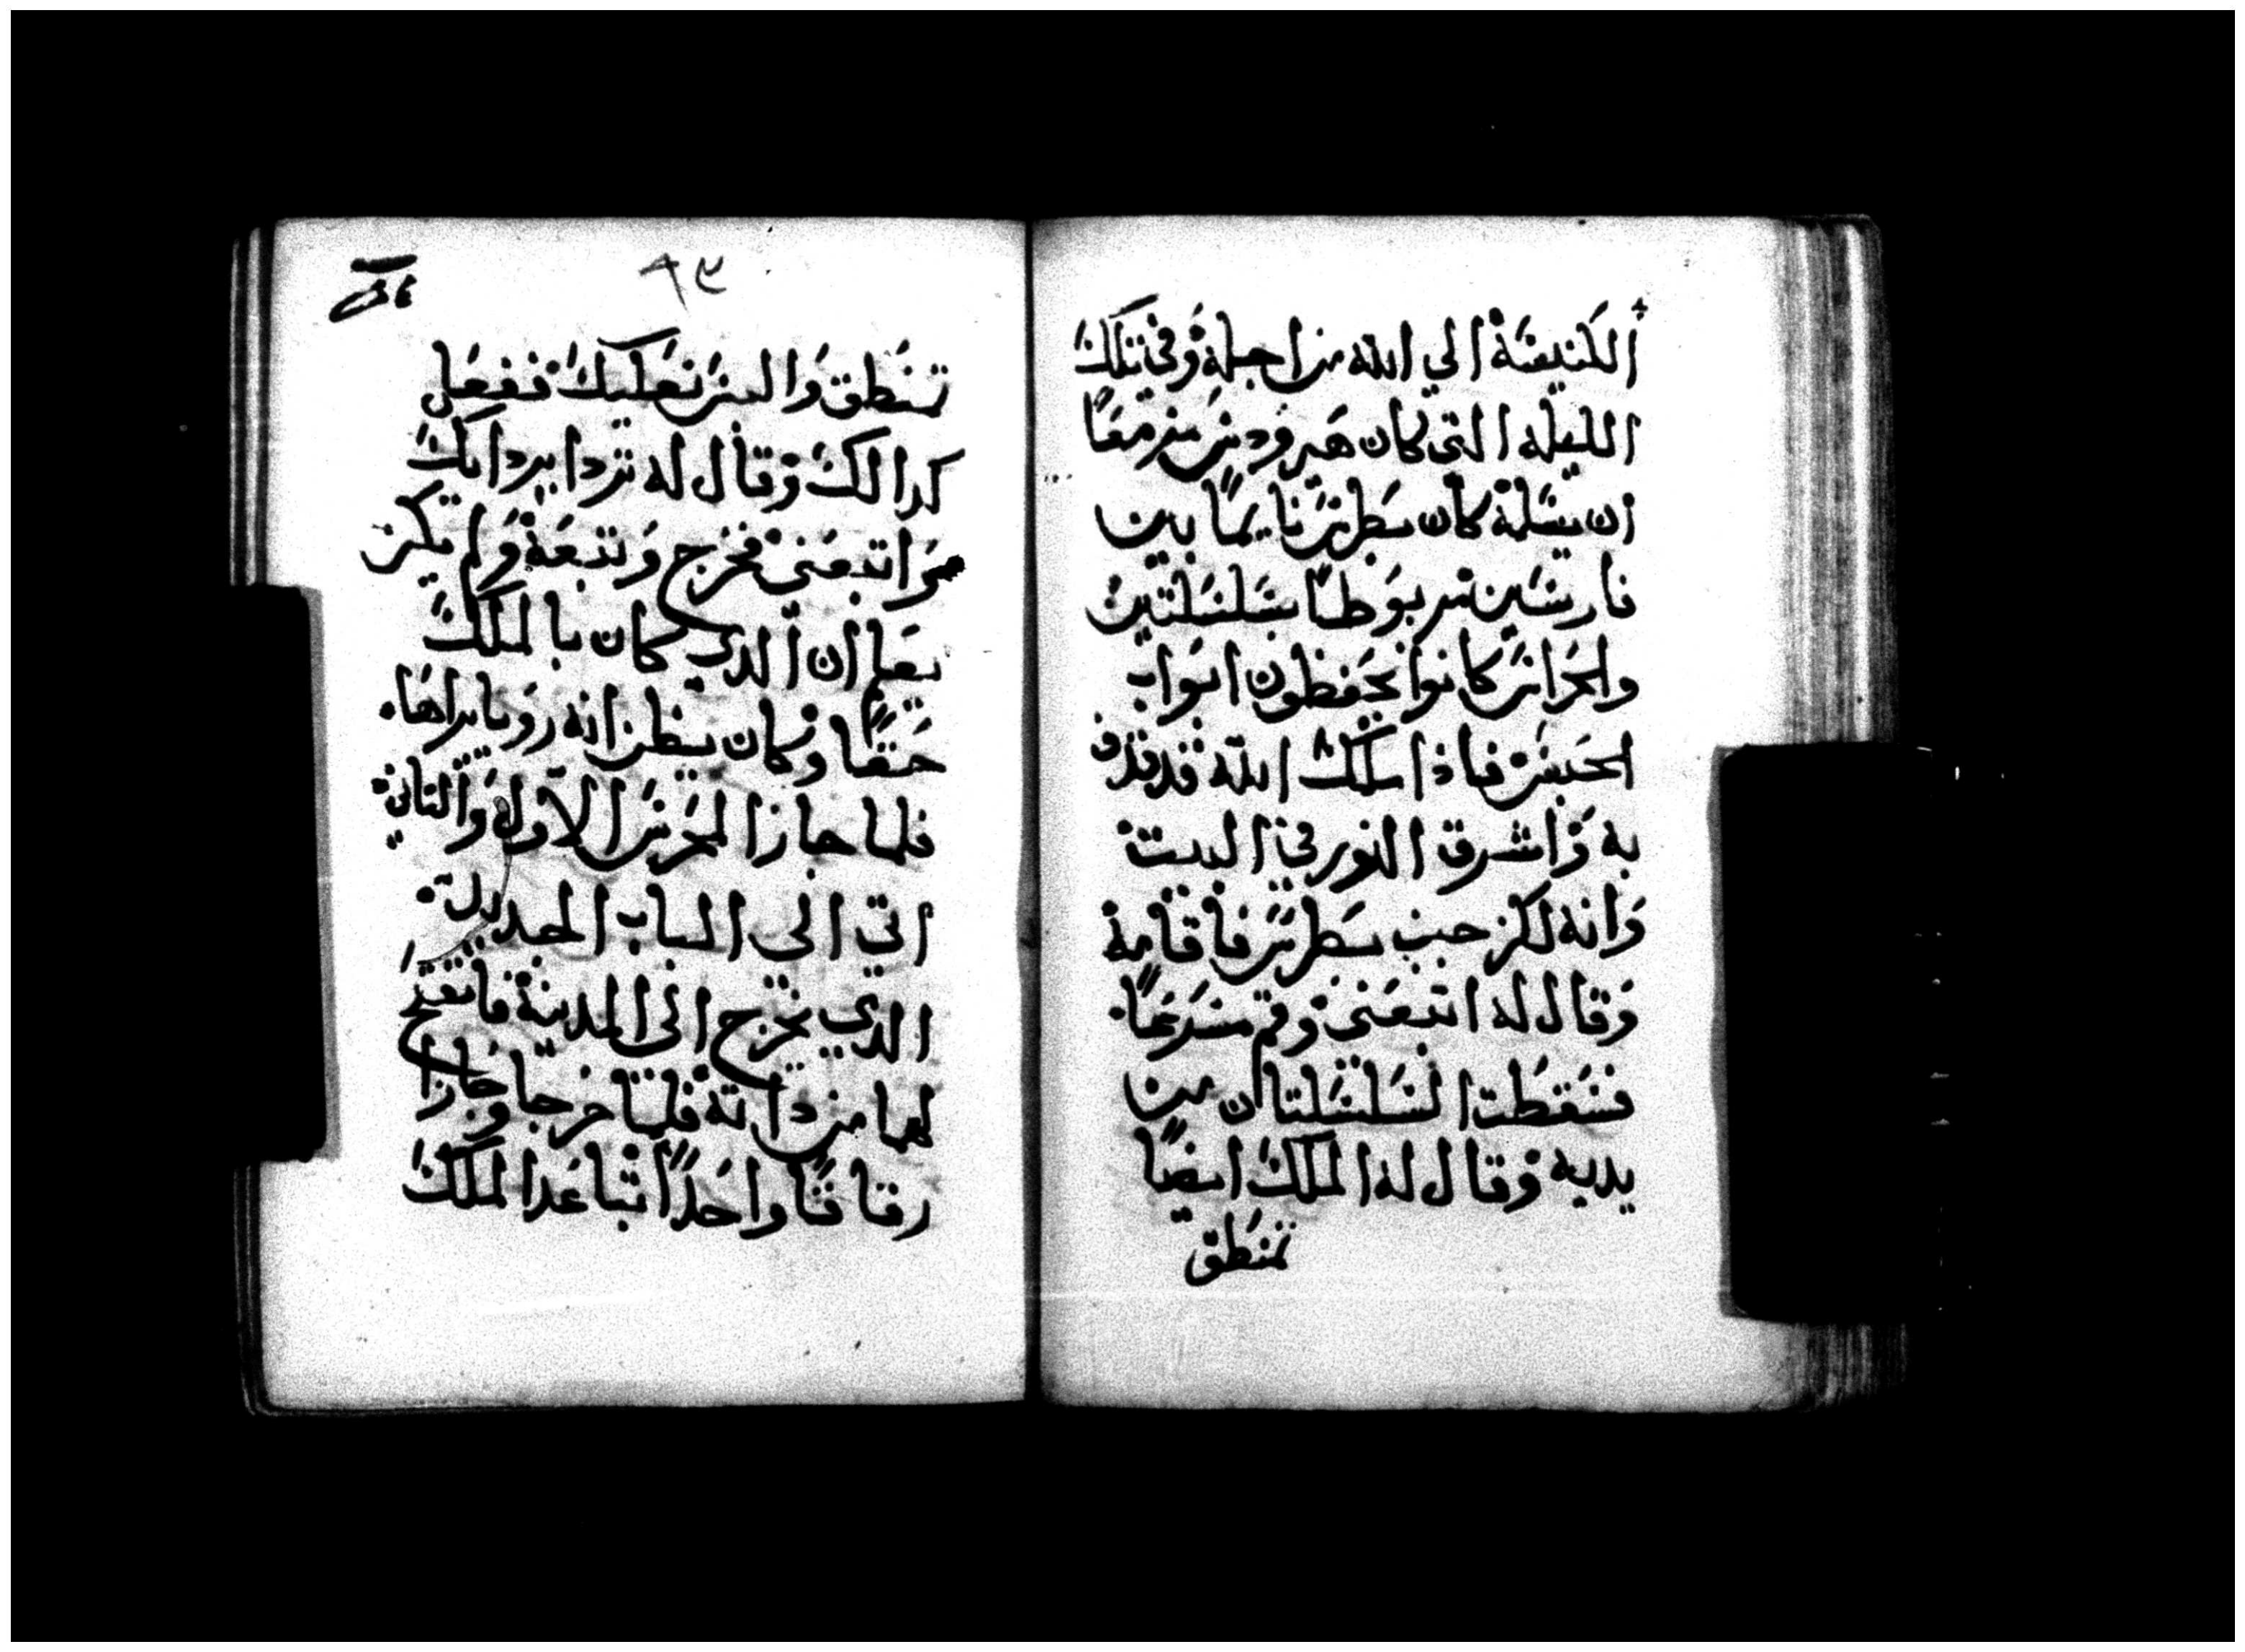 الكنيسة الي الله من اجله وفي تلك
الليله التي كان هيرودس مزمعا
ان يسلمة كان بطرس نايما بين
فارسين مربوطا بسلسلتين
والحراس كانوا يحفظون ابواب
الحبس فاذا ملاك الله قد قذف
به واشرق النور في البيت
وانه لكز جنب بطرس فاقامة
وقال له اتبعني وقم مسرعا
فسقطت السلسلتان من
يديه وقال له الملاك ايضا
تمنطق
٩٣
تمنطق والبس نعليك ففعل
كدالك وقال له تردا برداك
واتبعني فخرج وتبعة ولم يكن
يعلم ان الدي كان بالملاك
حقا وكان يظن انه رويا يراها
فلما جازا المحرس الاول والتاني
اتي الى الباب الحديد
الدي يخرج الى المدينة فانفتح
لهما من داته فلما خرجا وجازا
زقاقا واحدا تباعدا الملاك